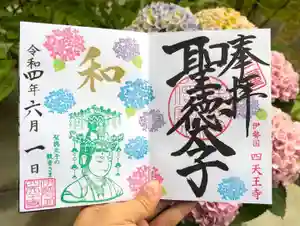 奉拝
聖徳太子
伊勢国 四天王寺
和
令和四年六月一日